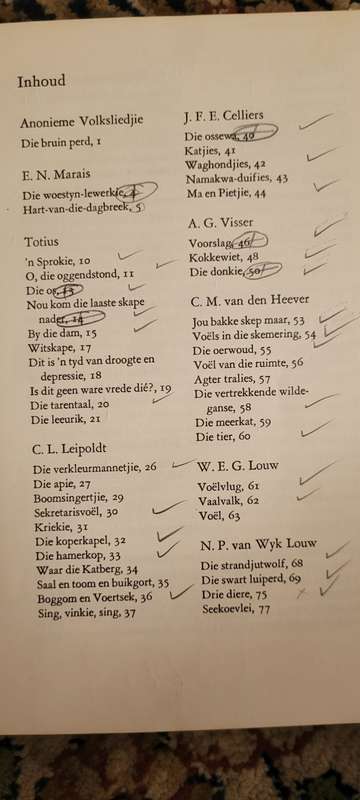 Inhoud
Anonieme Volksliedjie
Die bruin perd, 1
E. N. Marais
Die woestyn-lewerkie, 4
Hart-van-die-dagbreek, 5
Totius
'n Sprokie, 10
O, die oggendstond, 11
Die os, 13
Nou kom die laaste skape
nader, 14
By die dam, 15
Witskape, 17
Dit is 'n tyd van droogte en
depressie, 18
Is dit geen ware vrede dié?, 19
Die tarentaal, 20
Die leeurik, 21
C. L. Leipoldt
Die verkleurmannetjie, 26
Die apie, 27
Boomsingertjie, 29
Sekretarisvoël, 30
Kriekie, 31
Die koperkapel, 32
Die hamerkop, 33
Waar die Katberg, 34
Saal en toom en buikgort, 35
Boggom en Voertsek, 36
Sing, vinkie, sing, 37
J. F. E. Celliers
Die ossewa, 40
Katjies, 41
Waghondjies, 42
Namakwa-duifies, 43
Ma en Pietjie, 44
A. G. Visser
Voorslag, 46
Kokkewiet, 48
Die donkie, 50
C. M. van den Heever
Jou bakke skep maar, 53
Voëls in die skemering, 54
Die oerwoud, 55
Voël van die ruimte, 56
Agter tralies, 57
Die vertrekkende wilde-
ganse, 58
Die meerkat, 59
Die tier, 60
W. E. G. Louw
Voëlvlug, 61
Vaalvalk, 62
Voël, 63
N. P. van Wyk Louw
Die strandjutwolf, 68
Die swart luiperd, 69
Drie diere, 75
Seekoevlei, 77